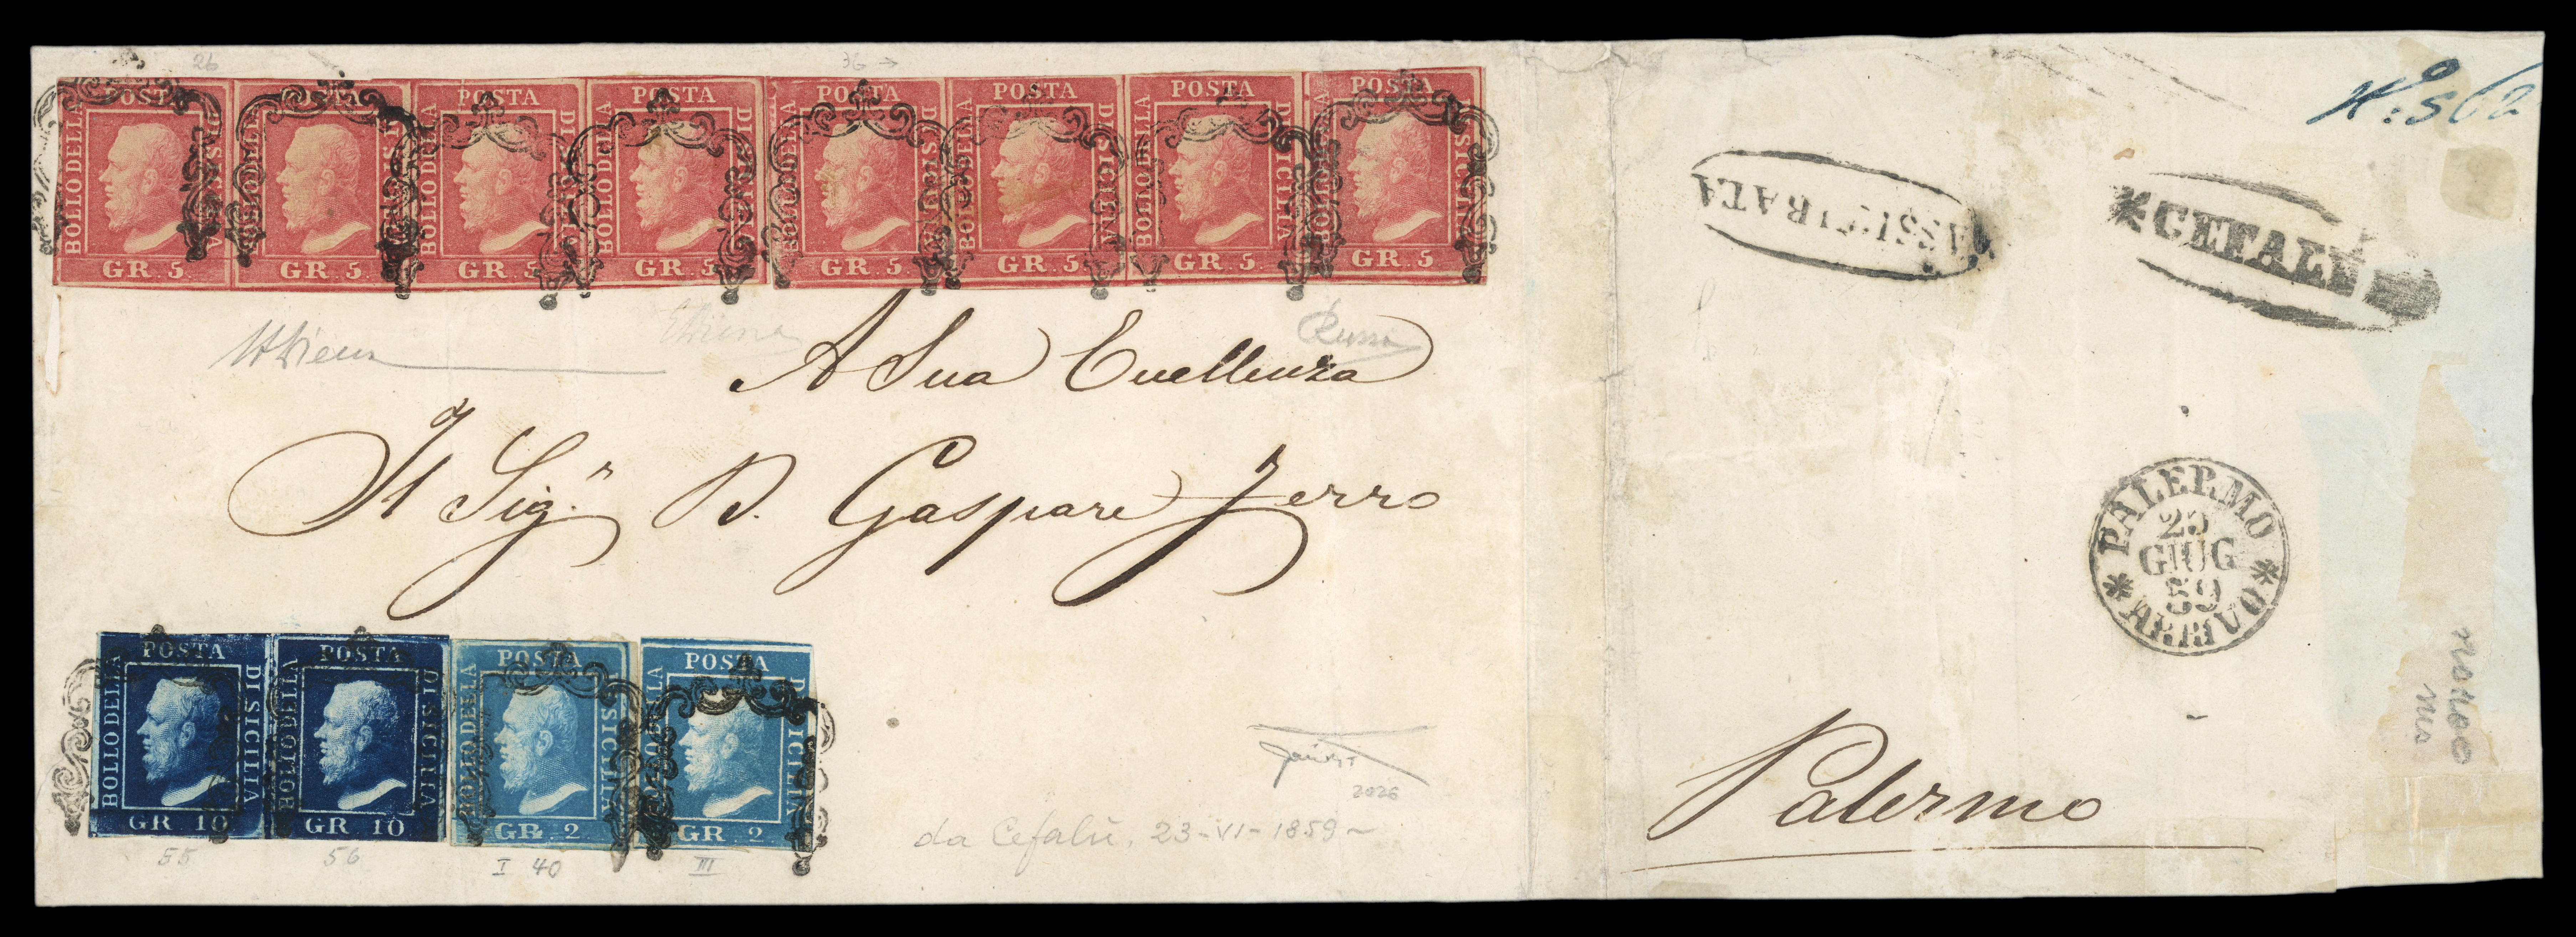 26
36 →
POSTA BOLLO DELLA DI SICILIA GR. 5
POSTA BOLLO DELLA DI SICILIA GR. 5
POSTA BOLLO DELLA DI SICILIA GR. 5
POSTA BOLLO DELLA DI SICILIA GR. 5
POSTA BOLLO DELLA DI SICILIA GR. 5
POSTA BOLLO DELLA DI SICILIA GR. 5
POSTA BOLLO DELLA DI SICILIA GR. 5
POSTA BOLLO DELLA DI SICILIA GR. 5
A Sua Eccellenza
Il Sig.r D. Gaspare Ferro
POSTA BOLLO DELLA DI SICILIA GR 10
POSTA BOLLO DELLA DI SICILIA GR 10
POSTA BOLLO DELLA DI SICILIA GR. 2
POSTA BOLLO DELLA DI SICILIA GR. 2
55
56
I 40
III
2026
da Cefalù, 23-VI-1859~
No: 562
ASSICURATA
*CEFALU
* PALERMO * ARRIVO
25
GIUG
59
Palermo